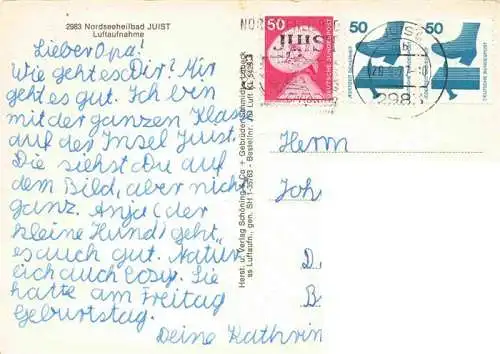 2983 Nordseeheilbad JUIST
Luftaufnahme
Lieber Opa!
Wie geht es Dir? Mir
geht es gut. Ich bin
mit der ganzen Klasse
auf der Insel Juist.
Die siehst Du auf
dem Bild, aber nicht
ganz. Anja (der
kleine Hund) geht
es auch gut. Natür
lich auch Cosy. Sie
hatte am Freitag
Geburtstag.
Deine Kathrin
Herst. u. Verlag Schöning & Co + Gebrüder Schmidt, Lübeck
Bestellnr.
50
50
50
DEUTSCHE BUNDESPOST
JUIST
2983
Herrn
Joh
D.
B